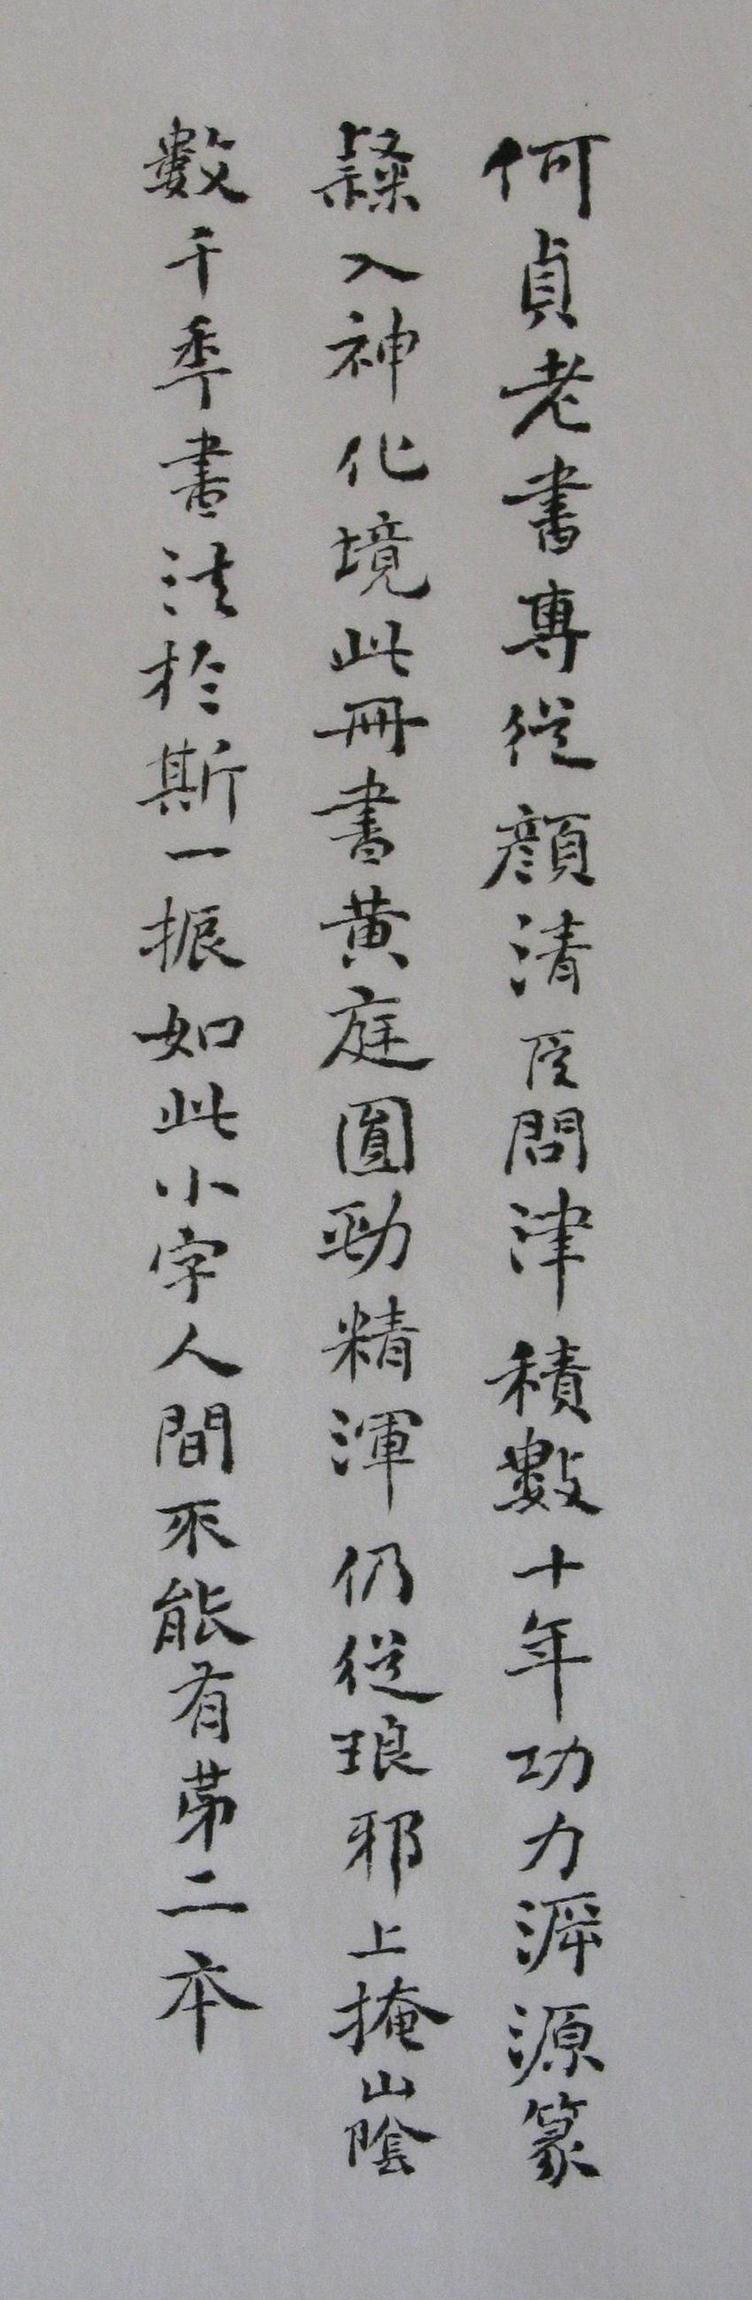 何貞老書專從顏清臣問津積數十年功力淵源篆
隸入神化境此冊書黃庭圓勁精渾仍從琅邪上掩山陰
數千季書法於斯一振如此小字人間不能有苐二本